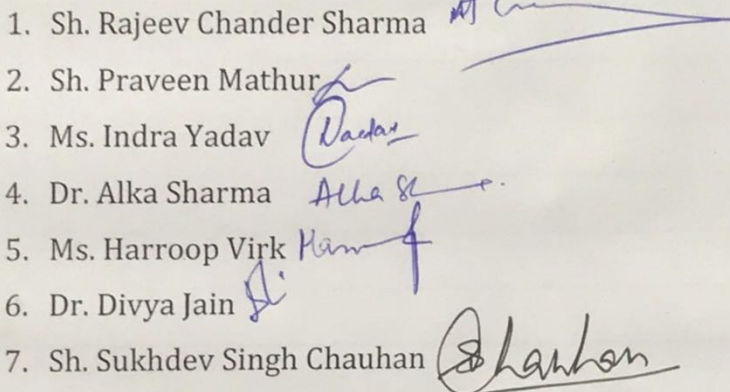 1. Sh. Rajeev Chander Sharma
2. Sh. Praveen Mathur
3. Ms. Indra Yadav
4. Dr. Alka Sharma Alka
5. Ms. Harroop Virk
6. Dr. Divya Jain
7. Sh. Sukhdev Singh Chauhan Chauhan